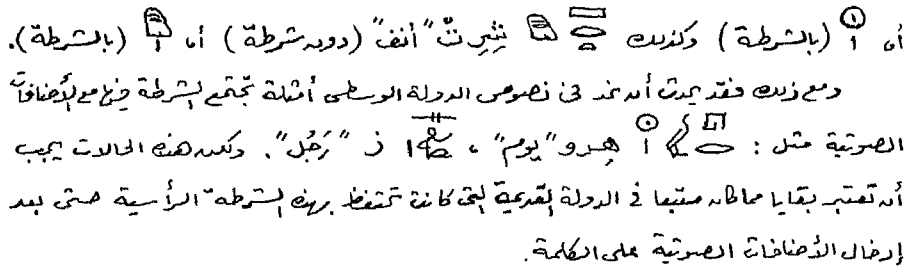 أو 𓇳𓏤 (بالشرطة) وكذلك "أنف" (دون شرطة) أو (بالشرطة).
ومع ذلك فقد يحدث أن نجد في نصوص الدولة الوسطى أمثلة تجتمع الشرطة فيها مع الأضافات
الصوتية مثل : هرو "يوم" ، ز "رَجُل". ولكن هذه الحالات يجب
أن تعتبر بقايا مما كان متبعا في الدولة القديمة التي كانت تحتفظ بهذه الشرطة الرأسية حتى بعد
إدخال الأضافات الصوتية على الكلمة.